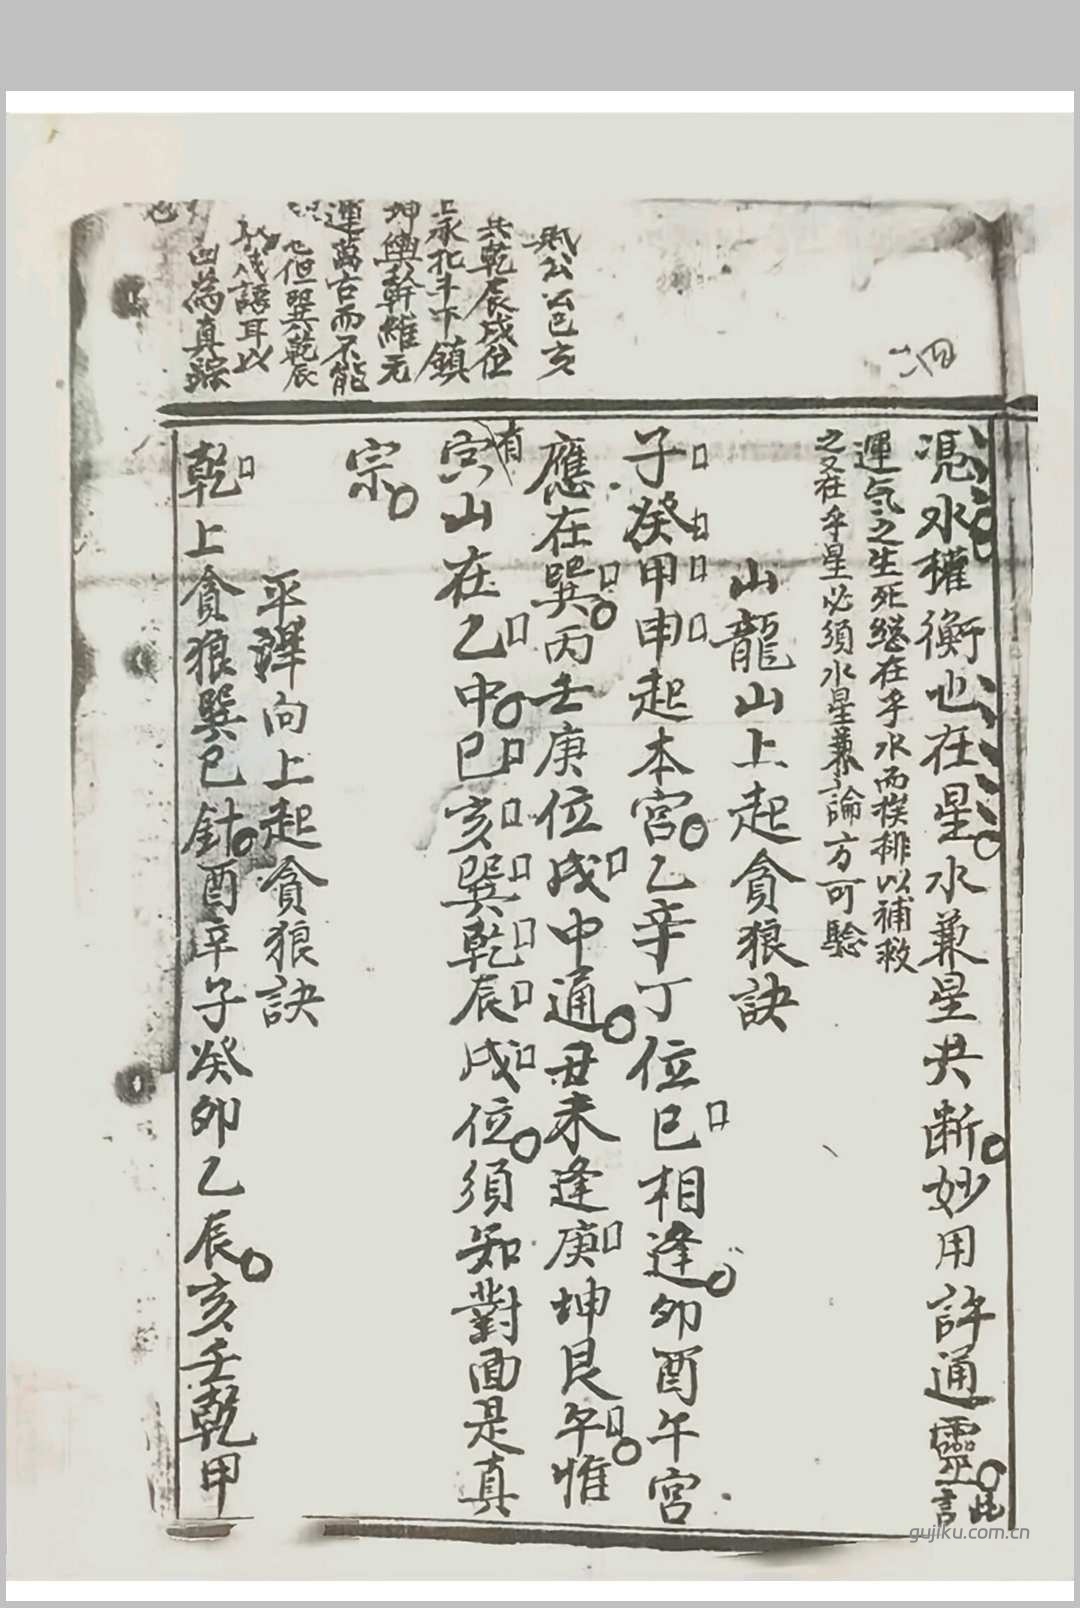 四
憑水權衡也在星水兼星共断妙用許通靈此言
運气之生死総在乎水而挨排以補救
之又在乎星必須水星兼論方可驗
山龍山上起貪狼訣
子癸甲申起本宮乙辛丁位巳相逢卯酉午宮
應在巽丙壬庚位戌中通丑未逢庚坤艮午惟
有山在乙中巳亥巽乾辰戌位須知對面是真
宗
平洋向上起貪狼訣
乾上貪狼巽巳針酉辛子癸卯乙辰亥壬乾甲
公巳亥
共乾辰戌位
上承北斗下鎮
坤輿幹維元
運萬古而不能
但巽乾辰
語耳以
為真踪
gujiku.com.cn